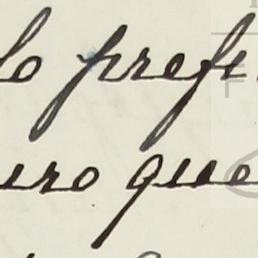 lo prefi
ero que